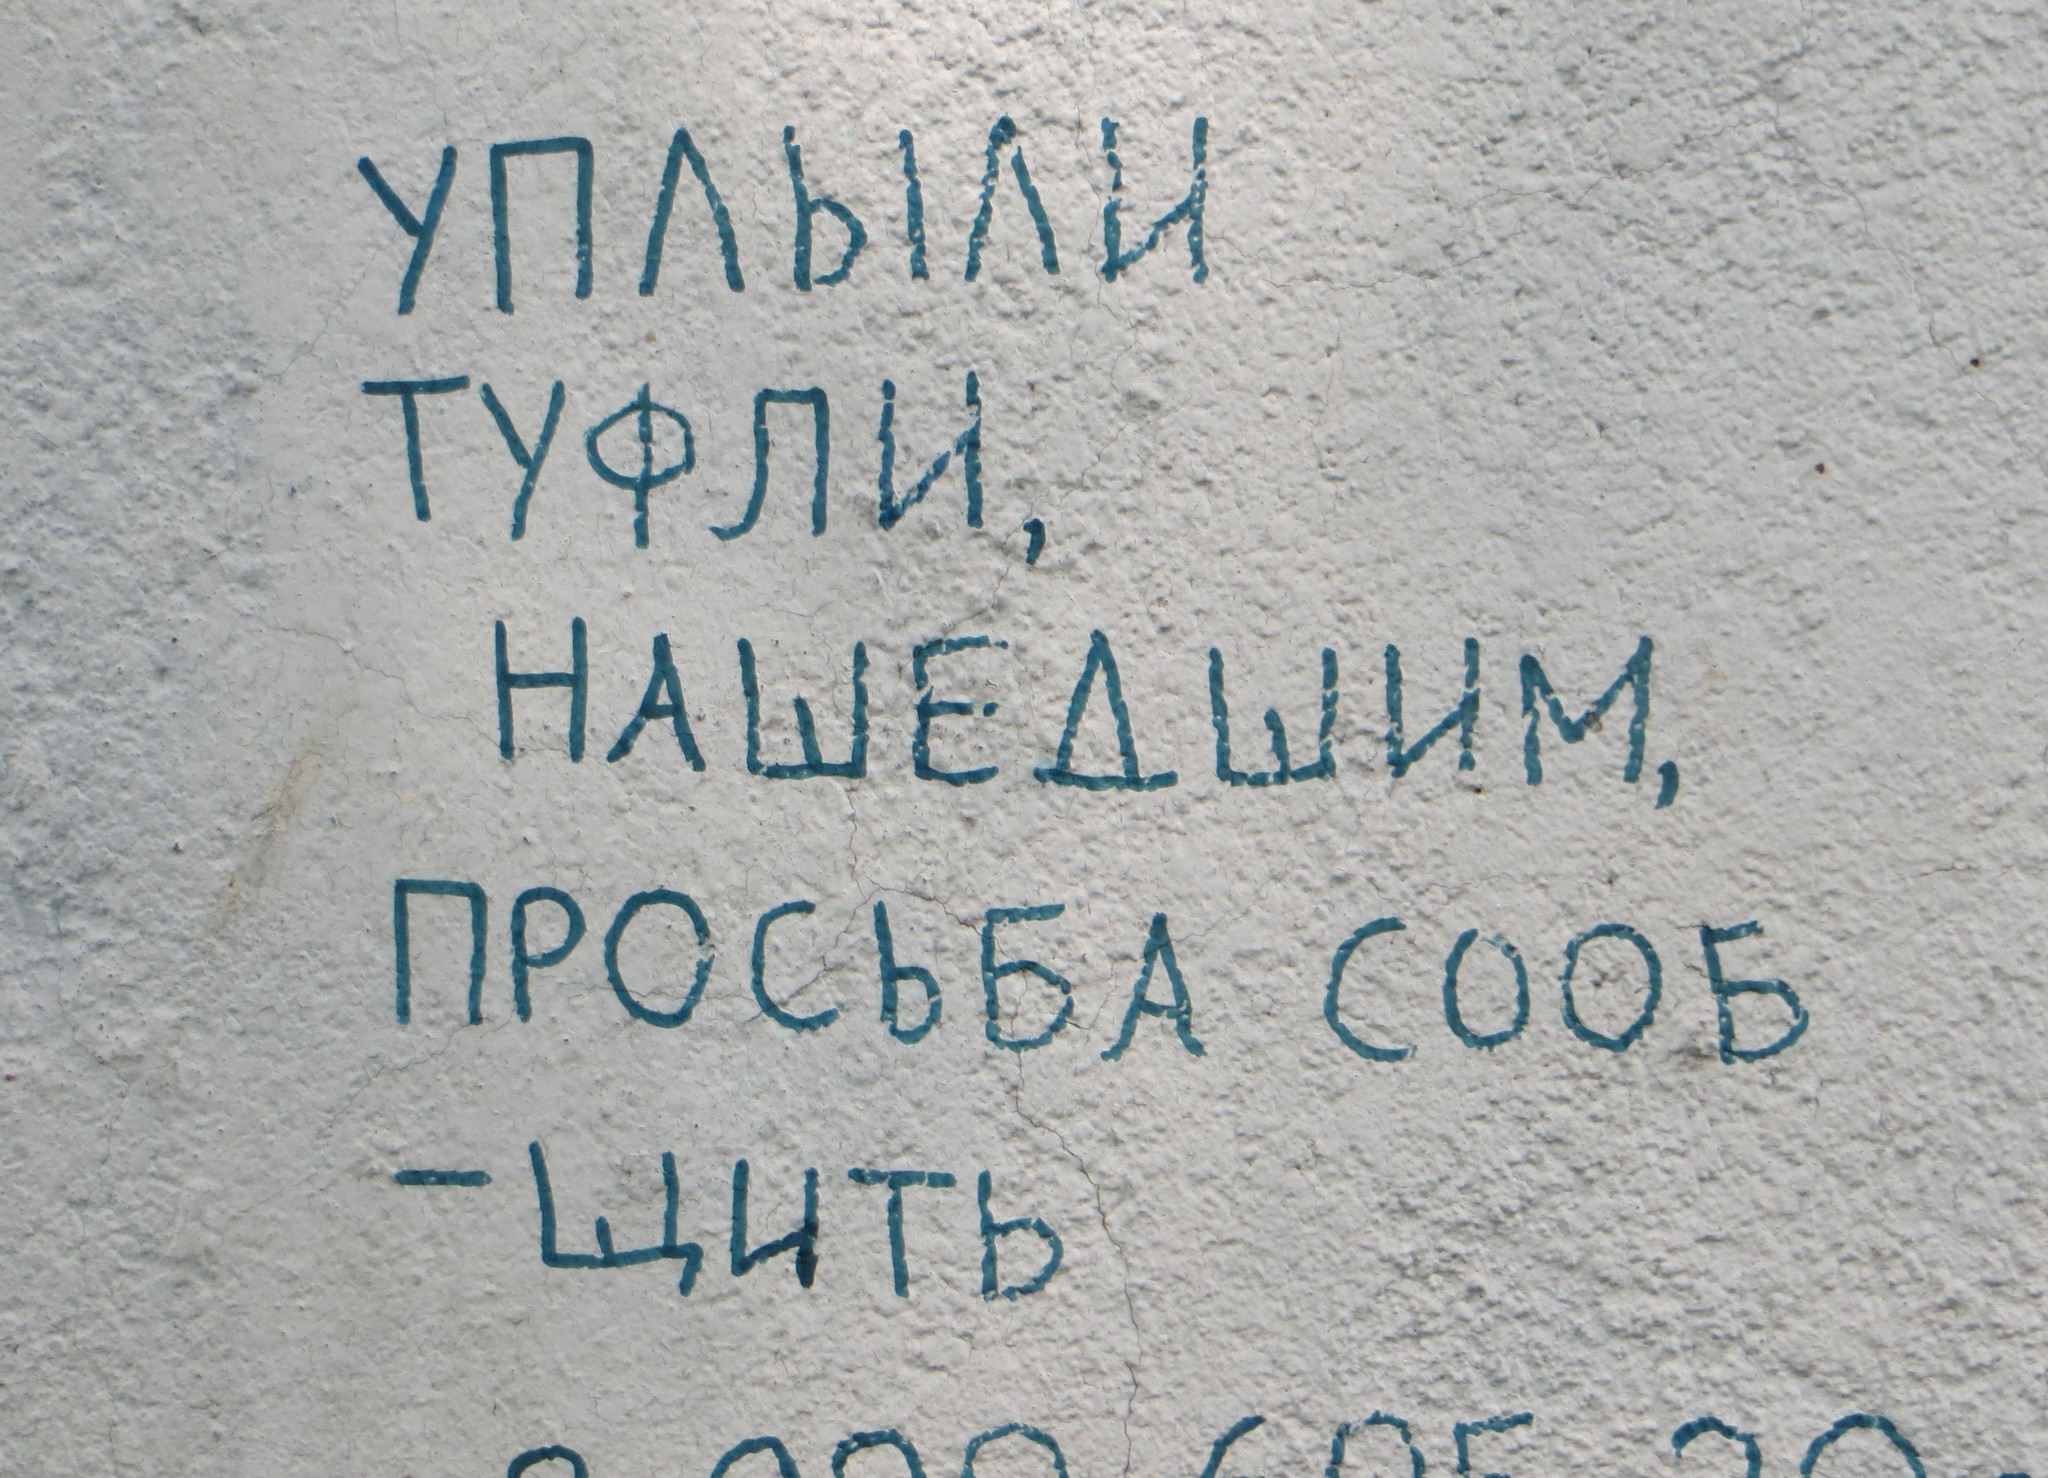 УПЛЫЛИ
ТУФЛИ,
НАШЕДШИМ,
ПРОСЬБА СООБ
-ЩИТЬ